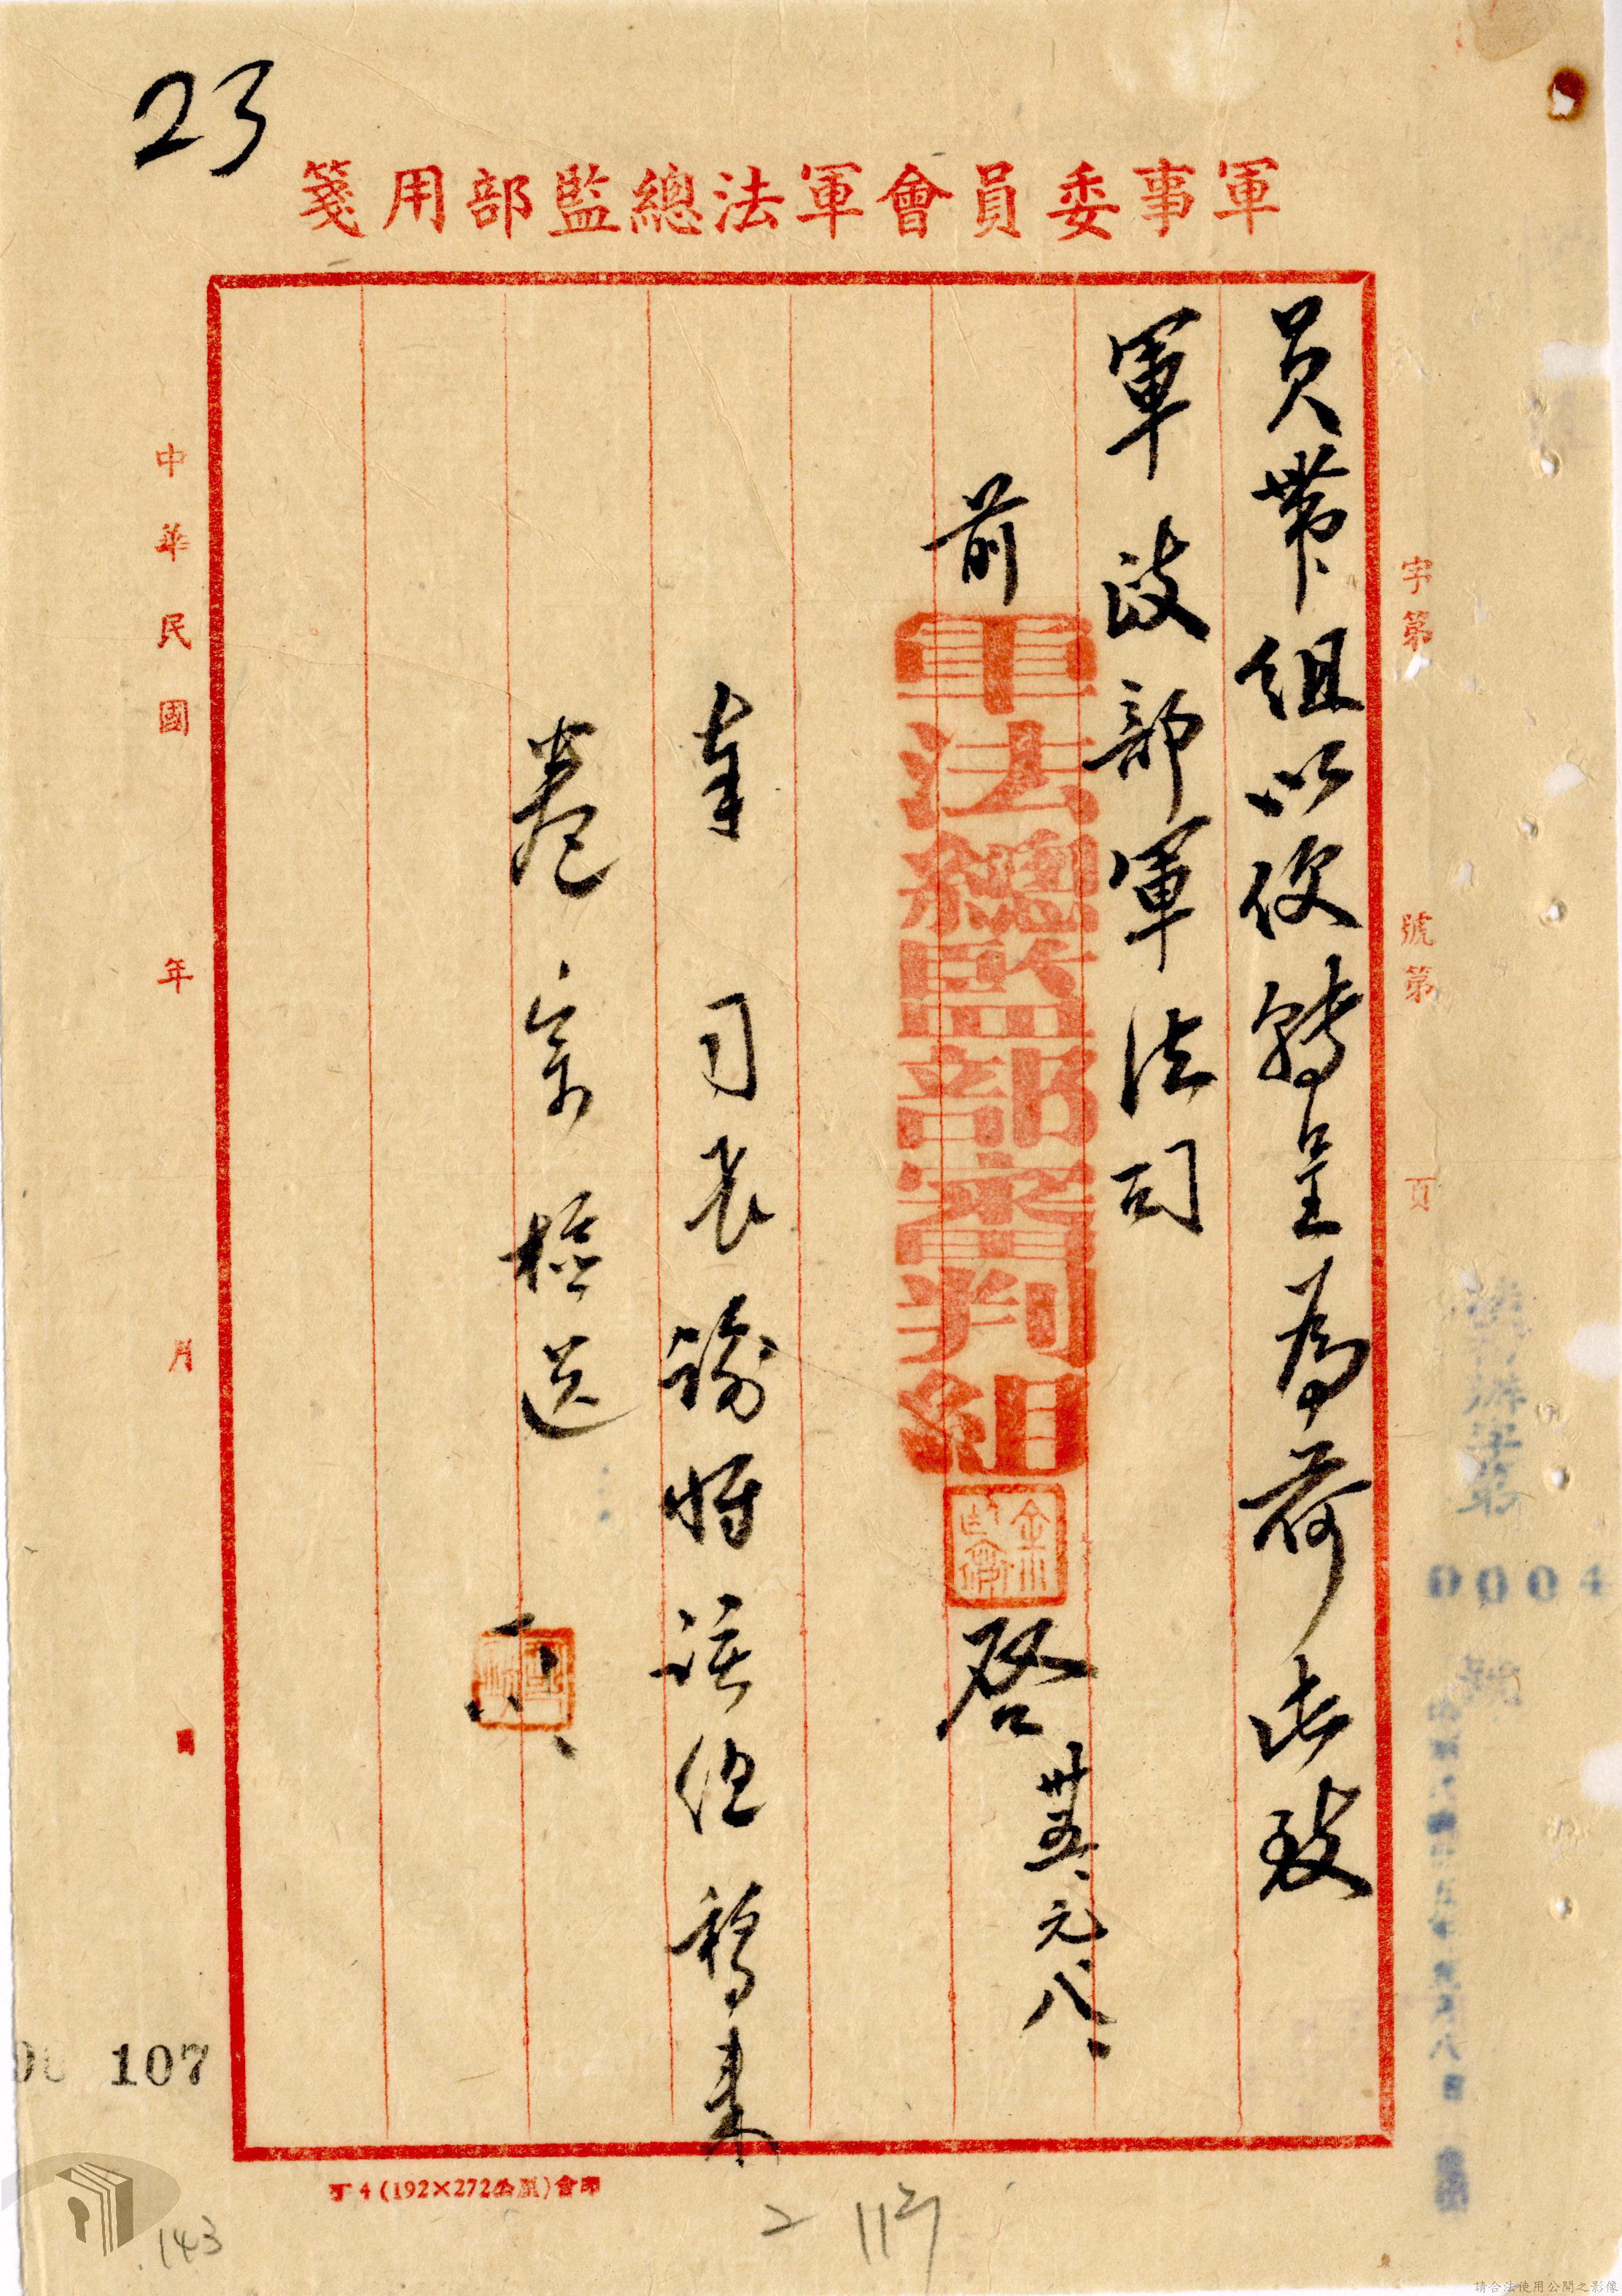 23
軍事委員會軍法總監部用箋
字第 號第 頁
員帶組以便轉呈為荷此致
軍政部軍法司
前
軍法總監部審判組
啓 卅五、元、八、
奉司長諭將該但
來
卷宗檢送
中華民國 年 月
107
丁4(192×272公厘)
0004
143
請合法使用公開之影像